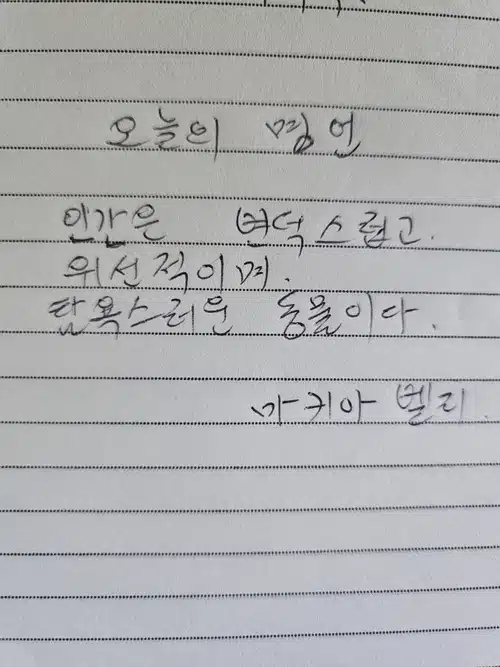 오늘의 명언
인간은 변덕스럽고.
위선적이며.
탐욕스러운 동물이다.
마키아벨리.